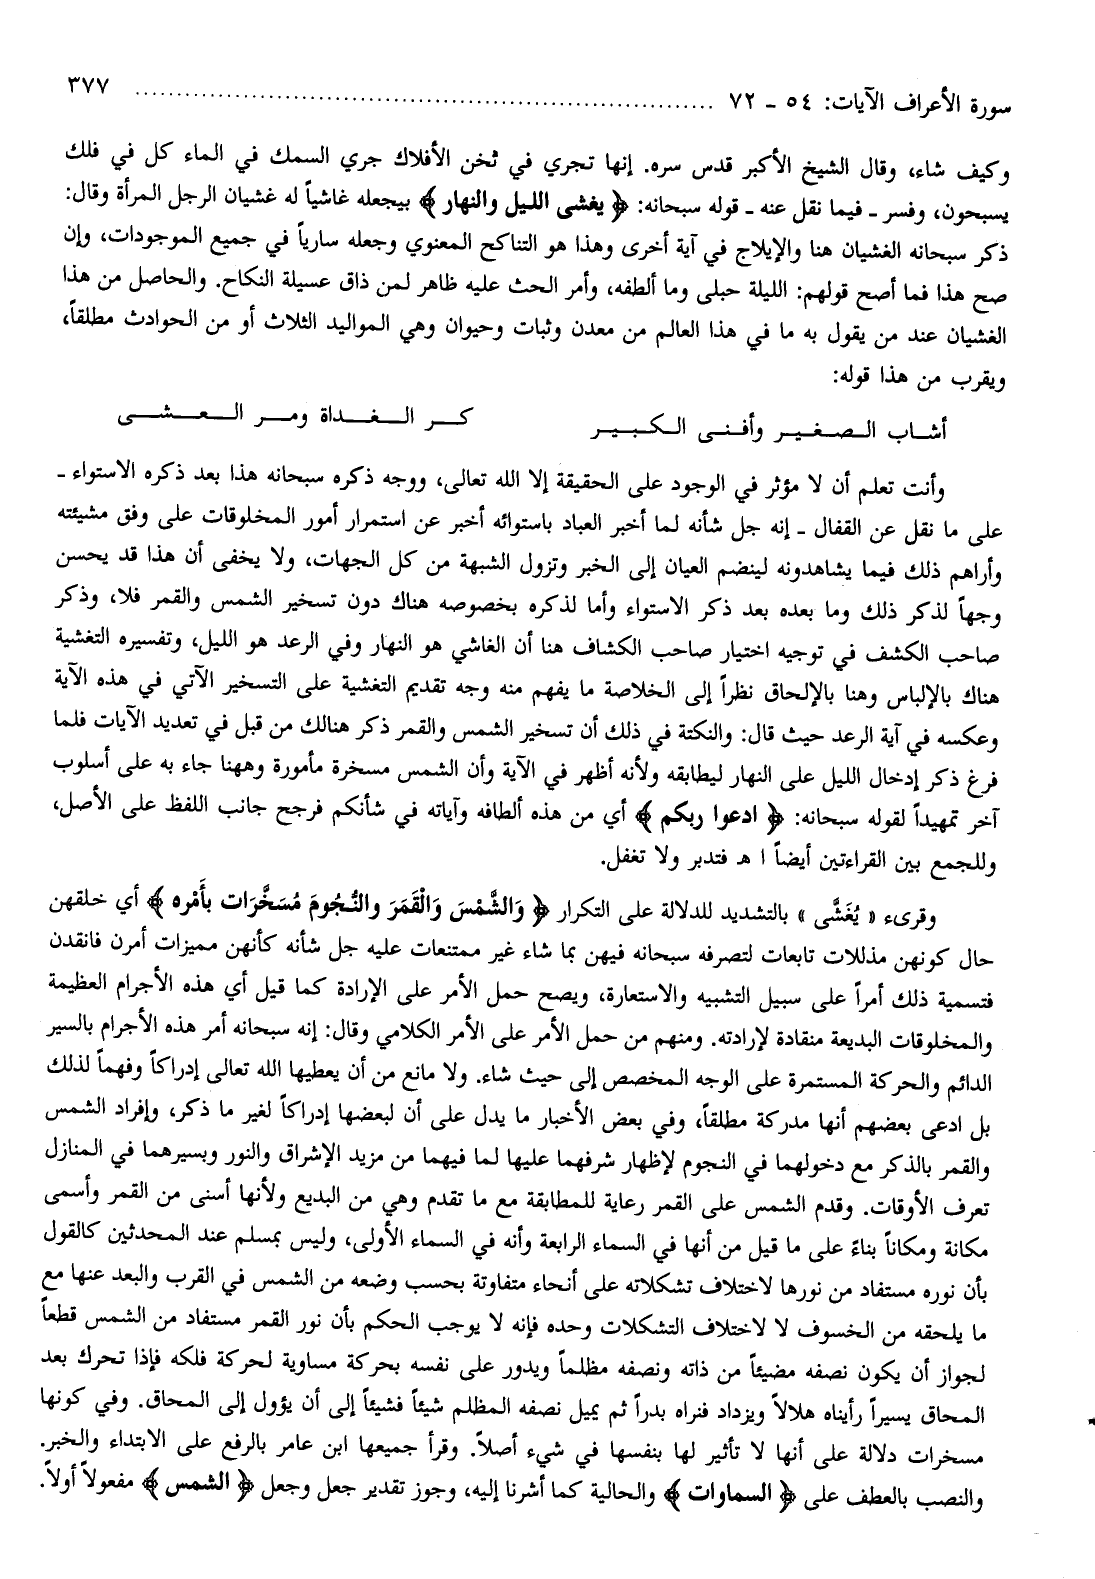 سورة الأعراف الآيات: ٥٤ ـ ٧٢ ................................................................ ٣٧٧
وكيف شاء، وقال الشيخ الأكبر قدس سره. إنها تجري في ثخن الأفلاك جري السمك في الماء كل في فلك
يسبحون، وفسر ـ فيما نقل عنه ـ قوله سبحانه: ﴿ يغشى الليل والنهار ﴾ بيجعله غاشياً له غشيان الرجل المرأة وقال:
ذكر سبحانه الغشيان هنا والإيلاج في آية أخرى وهذا هو التناكح المعنوي وجعله سارياً في جميع الموجودات، وإن
صح هذا فما أصح قولهم: الليلة حبلى وما ألطفه، وأمر الحث عليه ظاهر لمن ذاق عسيلة النكاح. والحاصل من هذا
الغشيان عند من يقول به ما في هذا العالم من معدن وثبات وحيوان وهي المواليد الثلاث أو من الحوادث مطلقاً،
ويقرب من هذا قوله:
أشاب الصغير وأفنى الكبير كر الغداة ومر العشى
وأنت تعلم أن لا مؤثر في الوجود على الحقيقة إلا الله تعالى، ووجه ذكره سبحانه هذا بعد ذكره الاستواء ـ
على ما نقل عن القفال ـ إنه جل شأنه لما أخبر العباد باستوائه أخبر عن استمرار أمور المخلوقات على وفق مشيئته
وأراهم ذلك فيما يشاهدونه لينضم العيان إلى الخبر وتزول الشبهة من كل الجهات، ولا يخفى أن هذا قد يحسن
وجهاً لذكر ذلك وما بعده بعد ذكر الاستواء وأما لذكره بخصوصه هناك دون تسخير الشمس والقمر فلا، وذكر
صاحب الكشف في توجيه اختيار صاحب الكشاف هنا أن الغاشي هو النهار وفي الرعد هو الليل، وتفسيره التغشية
هناك بالإلباس وهنا بالإلحاق نظراً إلى الخلاصة ما يفهم منه وجه تقديم التغشية على التسخير الآتي في هذه الآية
وعكسه في آية الرعد حيث قال: والنكتة في ذلك أن تسخير الشمس والقمر ذكر هنالك من قبل في تعديد الآيات فلما
فرغ ذكر إدخال الليل على النهار ليطابقه ولأنه أظهر في الآية وأن الشمس مسخرة مأمورة وههنا جاء به على أسلوب
آخر تمهيداً لقوله سبحانه: ﴿ ادعوا ربكم ﴾ أي من هذه ألطافه وآياته في شأنكم فرجح جانب اللفظ على الأصل،
وللجمع بين القراءتين أيضاً ا هـ فتدبر ولا تغفل.
وقرىء « يُغَشَّى » بالتشديد للدلالة على التكرار ﴿ وَالشَّمْسَ وَالْقَمَرَ والنُّجُومَ مُسَخَّرَات بأَمْره ﴾ أي خلقهن
حال كونهن مذللات تابعات لتصرفه سبحانه فيهن بما شاء غير ممتنعات عليه جل شأنه كأنهن مميزات أمرن فانقدن
فتسمية ذلك أمراً على سبيل التشبيه والاستعارة، ويصح حمل الأمر على الإرادة كما قيل أي هذه الأجرام العظيمة
والمخلوقات البديعة منقادة لإرادته. ومنهم من حمل الأمر على الأمر الكلامي وقال: إنه سبحانه أمر هذه الأجرام بالسير
الدائم والحركة المستمرة على الوجه المخصص إلى حيث شاء. ولا مانع من أن يعطيها الله تعالى إدراكاً وفهماً لذلك
بل ادعى بعضهم أنها مدركة مطلقاً، وفي بعض الأخبار ما يدل على أن لبعضها إدراكاً لغير ما ذكر، وإفراد الشمس
والقمر بالذكر مع دخولهما في النجوم لإظهار شرفهما عليها لما فيهما من مزيد الإشراق والنور وبسيرهما في المنازل
تعرف الأوقات. وقدم الشمس على القمر رعاية للمطابقة مع ما تقدم وهي من البديع ولأنها أسنى من القمر وأسمى
مكانة ومكاناً بناءً على ما قيل من أنها في السماء الرابعة وأنه في السماء الأولى، وليس بمسلم عند المحدثين كالقول
بأن نوره مستفاد من نورها لاختلاف تشكلاته على أنحاء متفاوتة بحسب وضعه من الشمس في القرب والبعد عنها مع
ما يلحقه من الخسوف لا لاختلاف التشكلات وحده فإنه لا يوجب الحكم بأن نور القمر مستفاد من الشمس قطعاً
لجواز أن يكون نصفه مضيئاً من ذاته ونصفه مظلماً ويدور على نفسه بحركة مساوية لحركة فلكه فإذا تحرك بعد
المحاق يسيراً رأيناه هلالاً ويزداد فنراه بدراً ثم يميل نصفه المظلم شيئاً فشيئاً إلى أن يؤول إلى المحاق. وفي كونها
مسخرات دلالة على أنها لا تأثير لها بنفسها في شيء أصلاً. وقرأ جميعها ابن عامر بالرفع على الابتداء والخبر.
والنصب بالعطف على ﴿ السماوات ﴾ والحالية كما أشرنا إليه، وجوز تقدير جعل وجعل ﴿ الشمس ﴾ مفعولاً أولاً.